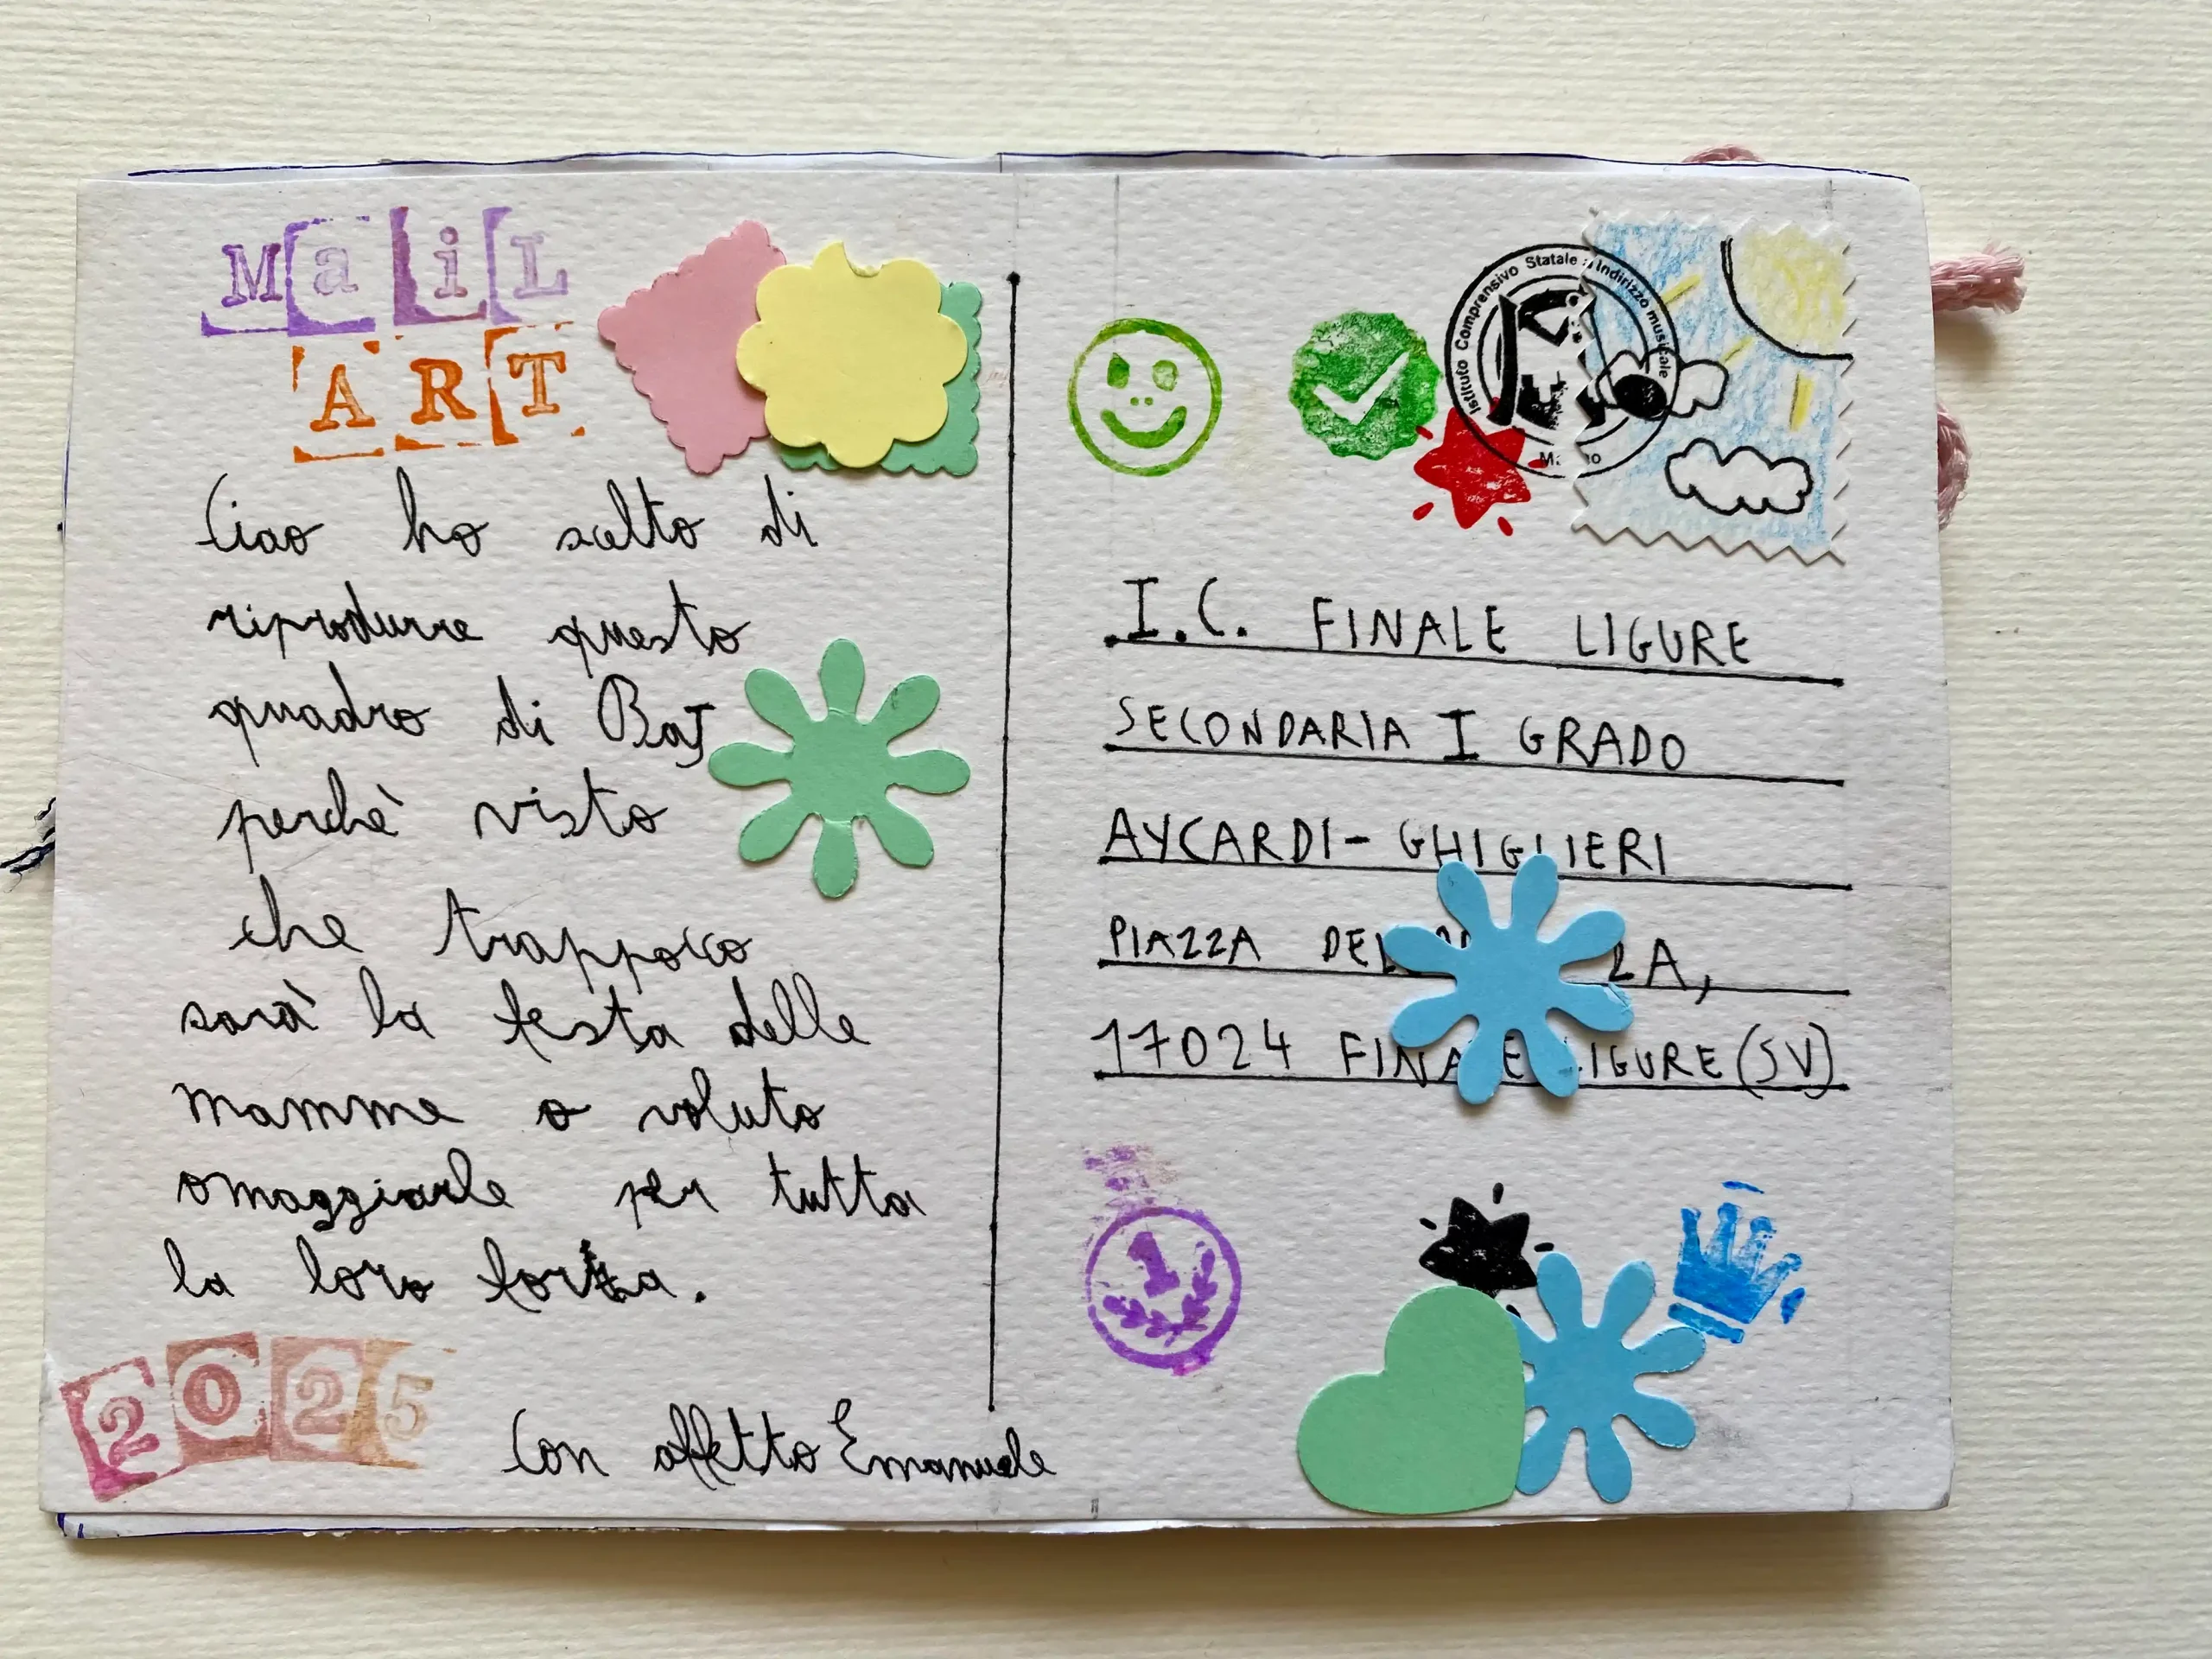 MaiL
ART
Ciao ho scelto di
riprodurre questo
quadro di BaJ
perchè visto
che trappoco
sarà la festa delle
mamme o voluto
omaggiarle per tutta
la loro forza.
2025
Con affetto Emanuele
Istituto Comprensivo Statale a Indirizzo musicale
I.C. FINALE LIGURE
SECONDARIA I GRADO
AYCARDI-GHIGLIERI
PIAZZA
17024 FINALE LIGURE (SV)
1